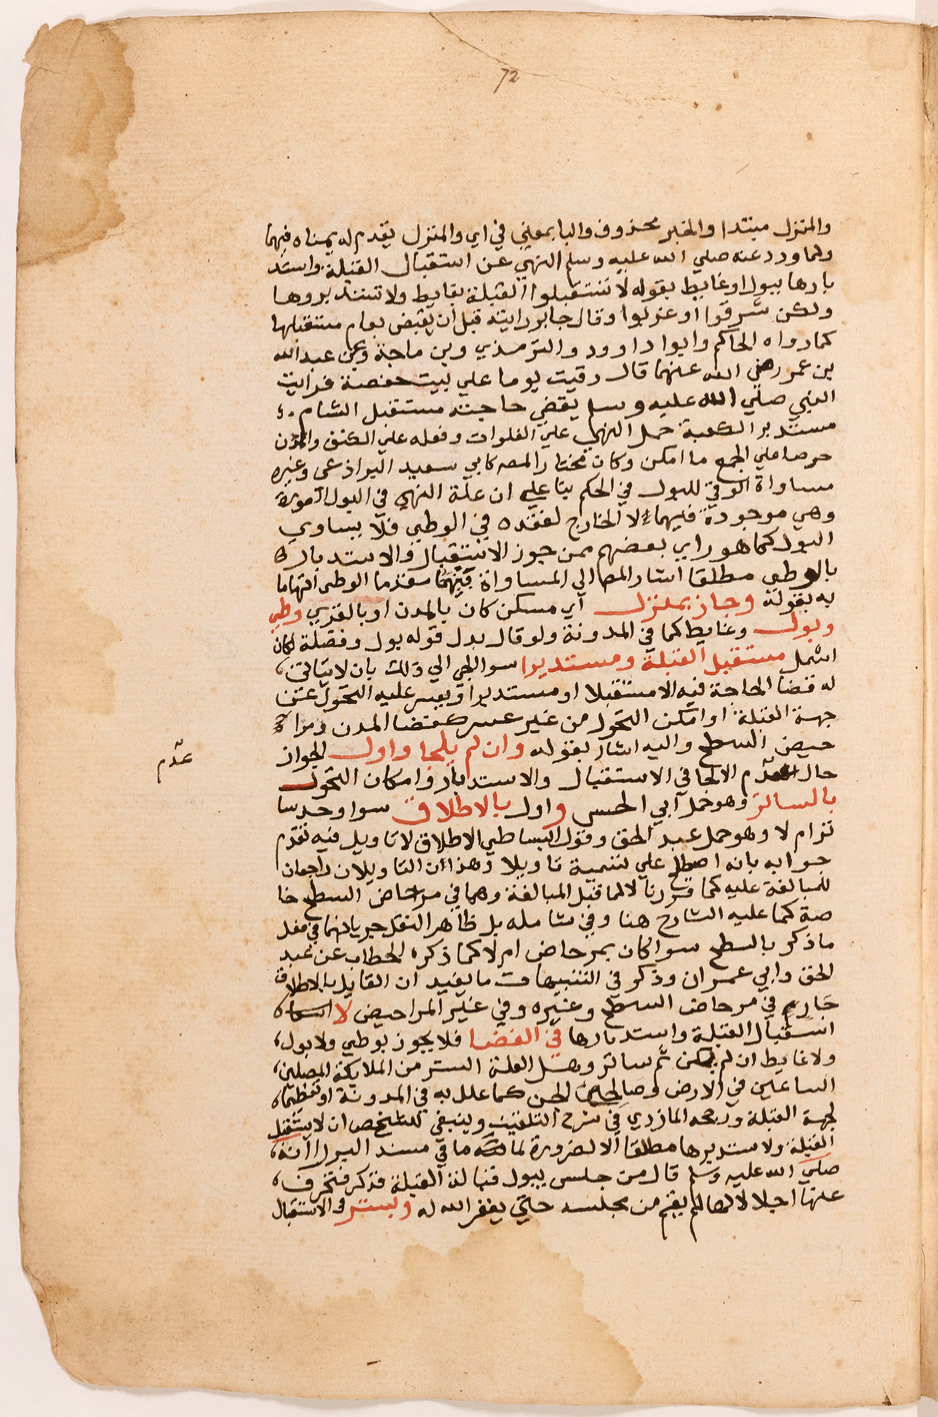 72
والمنزل مبتدا والخبر محذوف والبا بمعني في اي والمنزل يقدم له يمناه فيهما
ولما ورد عنه صلي الله عليه وسلم النهي عن استقبال القبلة واستد
بارها ببول او غايط بقوله لا تستقبلوا القبلة بغايط ولا تستدبروها
ولكن شرقوا او غربوا وقال جابر رايته قبل ان يقبض بعام مستقبلها
كما رواه الحاكم وابوا داوود والترمذي وبن ماجة وعن عبد الله
بن عمر رضي الله عنهما قال رقيت يوما علي بيت حفصة فرايت
النبي صلي الله عليه وسلم يقضي حاجته مستقبل الشام
مستدبر الكعبة حمل النهي علي الفلوات وفعله علي الكنف والمدن
حرصا علي الجمع ما امكن وكان مختار المص كابي سعيد البراذعي وغيره
مساواة الوطي للبول في الحكم بنا علي ان علة النهي في البول العورة
وهي موجودة فيهما لا الخارج لفقده في الوطي فلا يساوي
البول كما هو راي بعضهم ممن جوز الاستقبال والاستدبار
بالوطي مطلقا اشار المص الي المساواة بينهما مقدما الوطي اهتماما
به بقوله وجاز بمنزل اي مسكن كان بالمدن او بالقري وطي
وبول وغايط كما في المدونة ولو قال بدل قوله بول وفضلة لكان
اشمل مستقبل القبلة ومستدبرا سوا الجي الي ذلك بان لا يتاتي
له قضا الحاجة فيه الا مستقبلا او مستدبرا ويعسر عليه التحول عن
جهة القبلة او امكن التحول من غير عسر كقضا المدن ومرا
حيض السطح واليه اشار بقوله وان لم يلجا واول الجواز
حال عدم الالجا في الاستقبال والاستدبار وامكان التحول
عدم
بالساتر وهو حمل ابي الحسن واول بالاطلاق سوا وجد سا
تر ام لا وهو حمل عبد الحق وقول البساطي الاطلاق لا تاويل فيه تقدم
جوابه بانه اصطلح علي تسمية تاويلا وهذان التاويلان راجعان
للمبالغة عليه كما قررنا لا لما قبل المبالغة وهما في مرحاض السطح خا
صة كما عليه الشارح هنا وفي شامله بل ظاهر النقل جريانهما في مثل
ما ذكر بالسطح سوا كان بمرحاض ام لا كما ذكره الحطاب عن عبد
الحق وابي عمران وذكر في التنبيهات ما يفيد ان القايل بالاطلاق
جار في مرحاض السطح وغيره وفي غير المراحيض لا
استقبال القبلة واستدبارها في الفضا فلا يجوز بوطي ولا بول
ولا غايط ان لم يكن ثم ساتر وهل العلة الستر من الملايكة المصلين
الساعلين في الارض وصالحين الجن كما علل به في المدونة او تعظيما
لجهة القبلة ورجحه المازري في شرح التلقين وينبغي للشخص ان لا يستقبل
القبلة ولا مستدبرها مطلقا الا لضرورة لما ما في مسند البزار انه
صلي الله عليه وسلم قال من جلس يبول قبالة القبلة فذكر فتحرف
عنها اجلالا لها لم يقم من مجلسه حتي يغفر الله له وبستر في الاستقبال